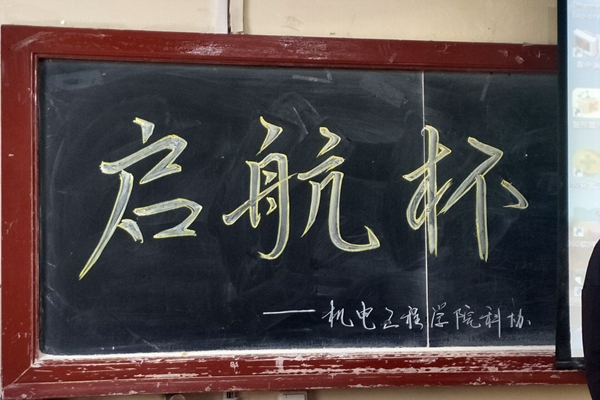 启航杯
——机电工程学院科协